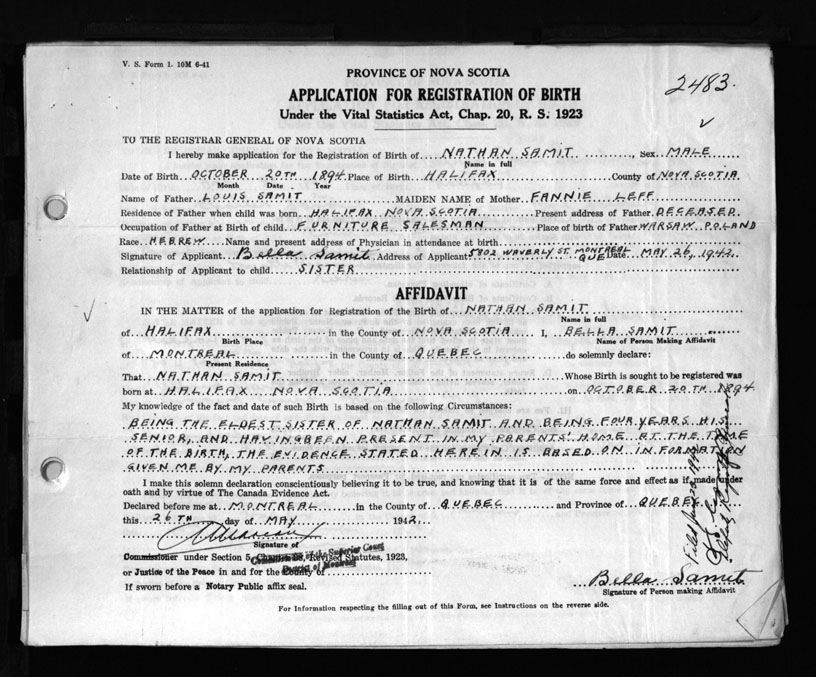 V. S. Form 1. 10M 6-41
PROVINCE OF NOVA SCOTIA
2483.
APPLICATION FOR REGISTRATION OF BIRTH
Under the Vital Statistics Act, Chap. 20, R. S. 1923
TO THE REGISTRAR GENERAL OF NOVA SCOTIA
I hereby make application for the Registration of Birth of NATHAN SAMIT, Sex MALE
Name in full
Date of Birth OCTOBER 20TH 1894 Place of Birth HALIFAX County of NOVA SCOTIA
Month Date Year
Name of Father LOUIS SAMIT MAIDEN NAME of Mother FANNIE LEFF
Residence of Father when child was born HALIFAX NOVA SCOTIA Present address of Father DECEASED
Occupation of Father at Birth of child FURNITURE SALESMAN Place of birth of Father WARSAW POLAND
Race HEBREW Name and present address of Physician in attendance at birth
Signature of Applicant Bella Samit Address of Applicant 5802 WAVERLY ST. MONTREAL QUE Date MAY 26, 1942.
Relationship of Applicant to child SISTER
AFFIDAVIT
IN THE MATTER of the application for Registration of the Birth of NATHAN SAMIT
Name in full
of HALIFAX in the County of NOVA SCOTIA I, BELLA SAMIT
Birth Place Name of Person Making Affidavit
of MONTREAL in the County of QUEBEC do solemnly declare:
Present Residence
That NATHAN SAMIT Whose Birth is sought to be registered was
born at HALIFAX NOVA SCOTIA on OCTOBER 20TH 1894
My knowledge of the fact and date of such Birth is based on the following Circumstances:
BEING THE ELDEST SISTER OF NATHAN SAMIT AND BEING FOUR YEARS HIS
SENIOR, AND HAVING BEEN PRESENT IN MY PARENTS' HOME AT THE TIME
OF THE BIRTH, THE EVIDENCE STATED HERE IN IS BASED ON INFORMATION
GIVEN ME BY MY PARENTS
I make this solemn declaration conscientiously believing it to be true, and knowing that it is of the same force and effect as if made under
oath and by virtue of The Canada Evidence Act.
Declared before me at MONTREAL in the County of QUEBEC and Province of QUEBEC
this 26TH day of MAY 1942
Signature of
Commissioner under Section 5, Chapter 38, Revised Statutes, 1923,
of the Superior Court
District of Montreal
or Justice of the Peace in and for the County of
If sworn before a Notary Public affix seal.
Bella Samit
Signature of Person making Affidavit
For Information respecting the filling out of this Form, see Instructions on the reverse side.